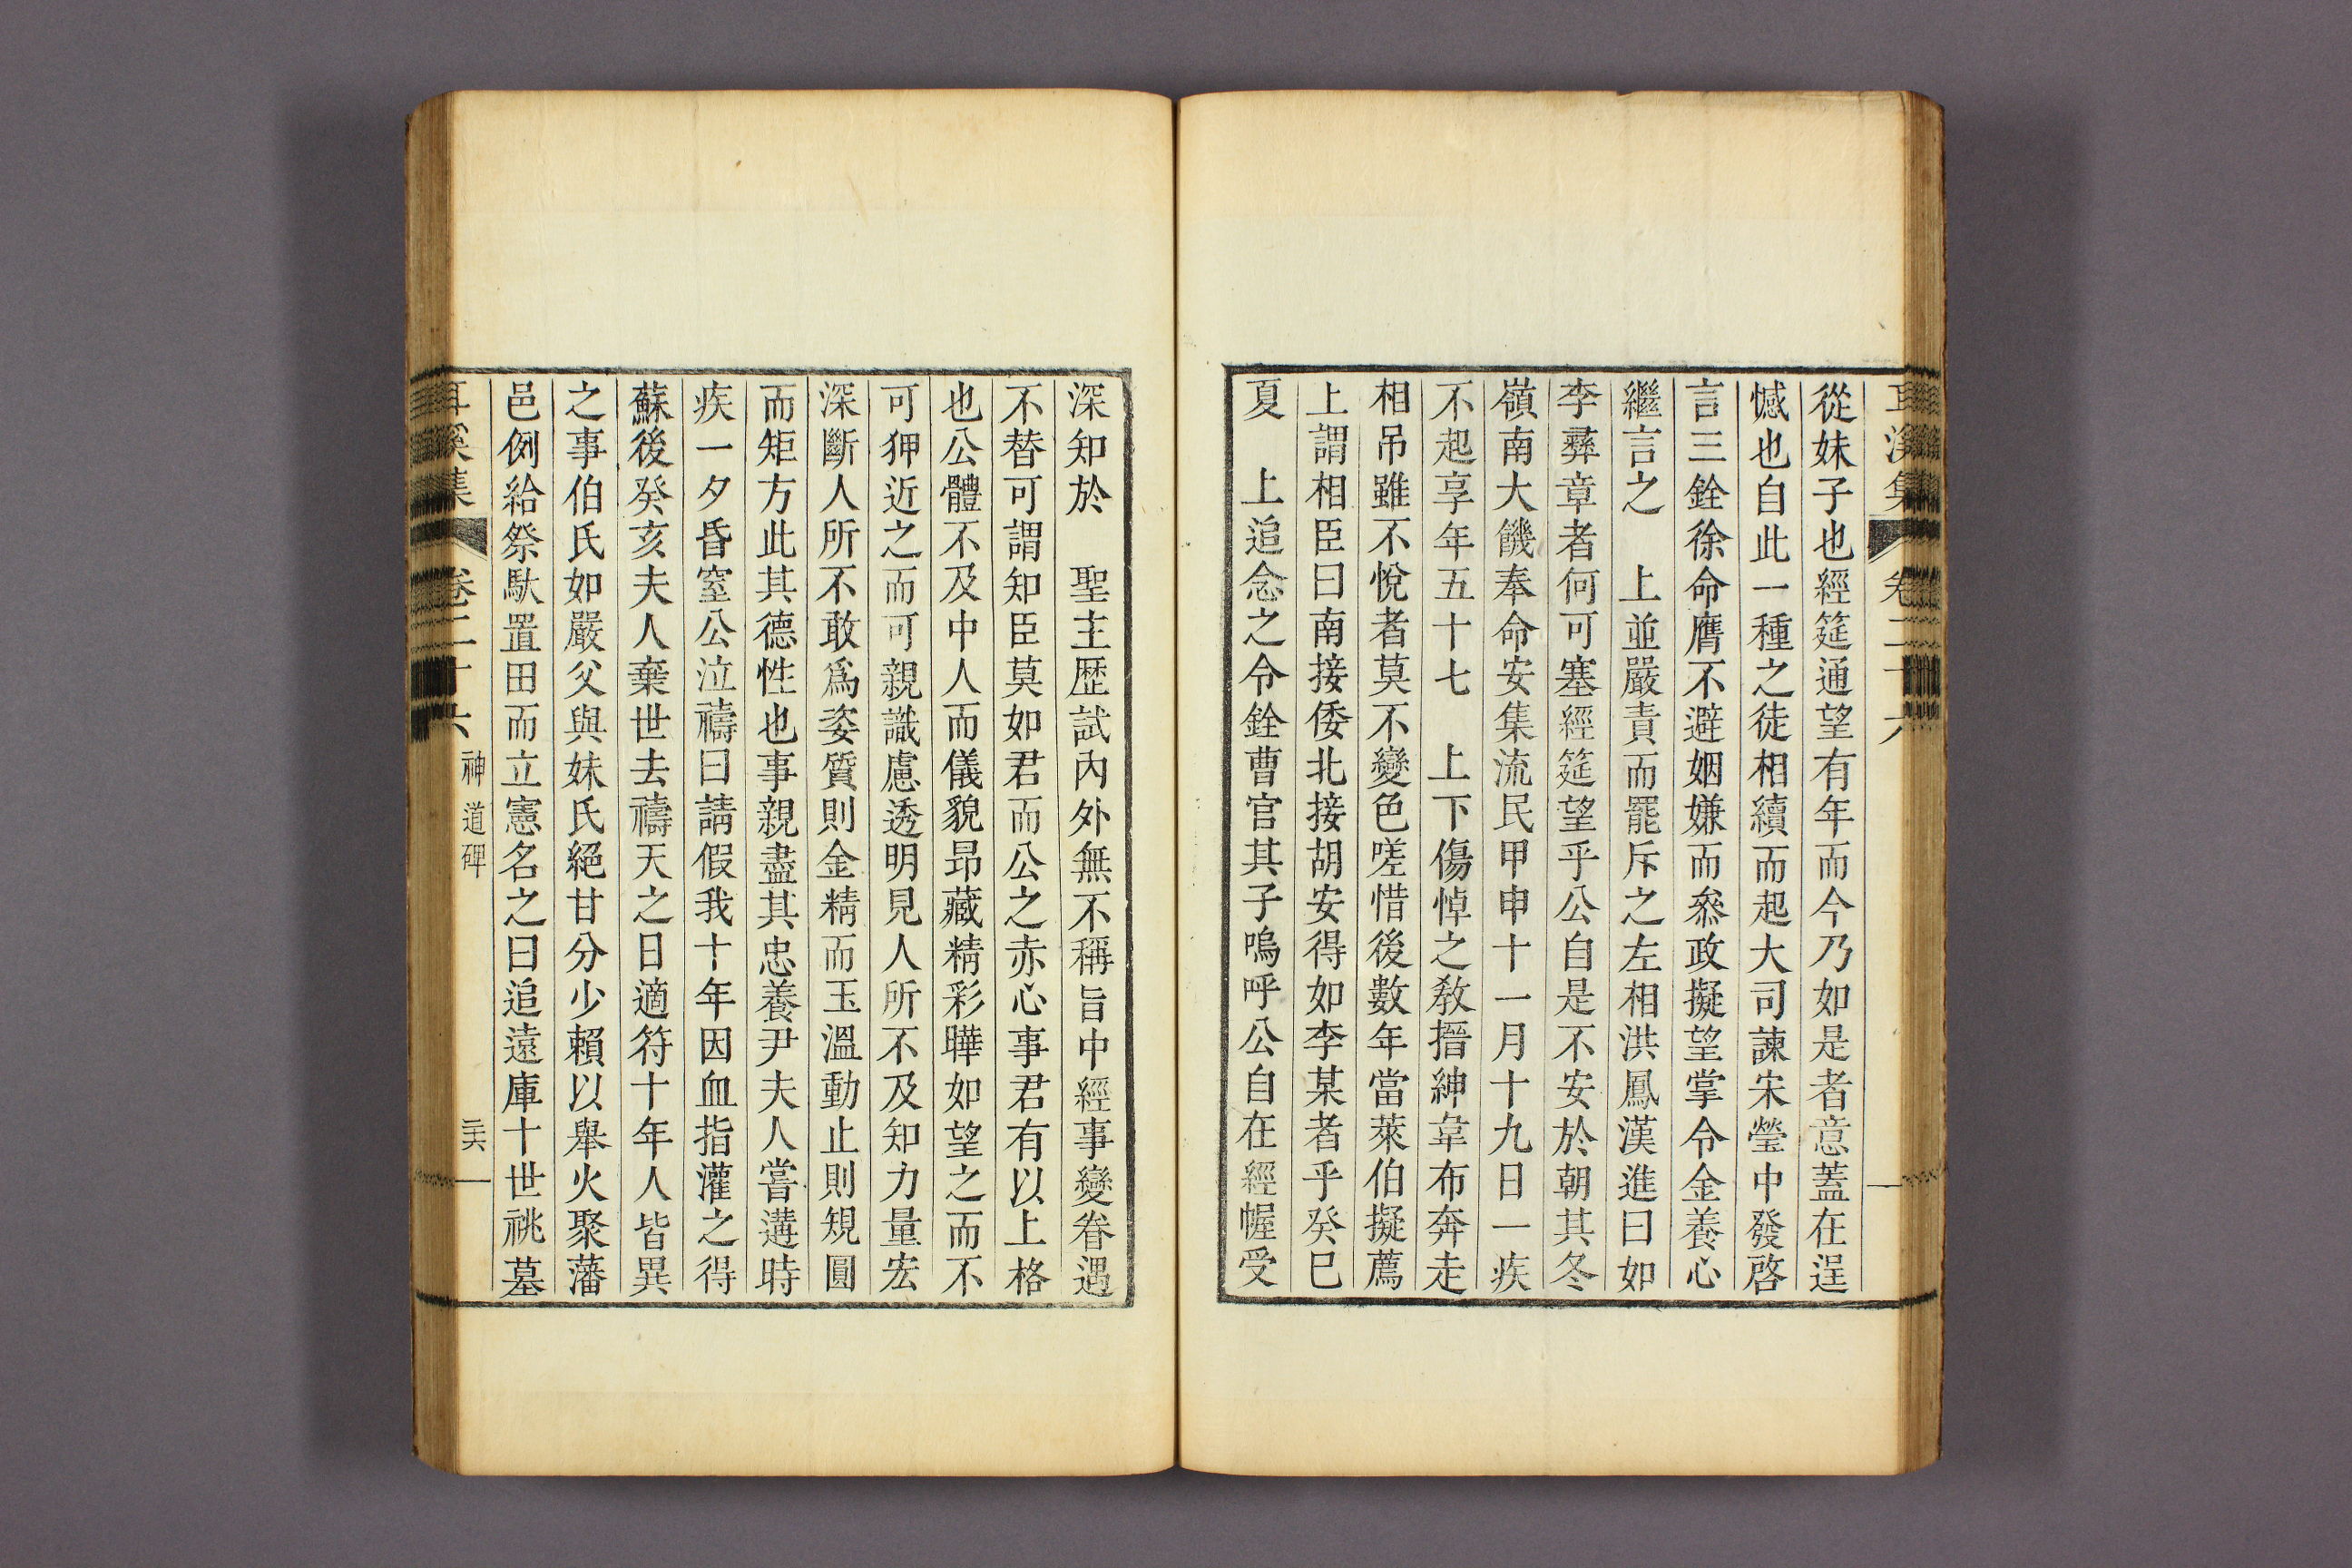 耳溪集 卷二十六
從妹子也經筵通望有年而今乃如是者意蓋在逞
憾也自此一種之徒相續而起大司諫宋瑩中發啓
言三銓徐命膺不避姻嫌而叅政擬望掌令金養心
繼言之　上並嚴責而罷斥之左相洪鳳漢進曰如
李彛章者何可塞經筵望乎公自是不安於朝其冬
嶺南大饑奉命安集流民甲申十一月十九日一疾
不起享年五十七　上下傷悼之敎搢紳韋布奔走
相吊雖不悅者莫不變色嗟惜後數年當萊伯擬薦
上謂相臣曰南接倭北接胡安得如李某者乎癸巳
夏　上追念之令銓曹官其子嗚呼公自在經幄受
深知於　聖主歷試內外無不稱旨中經事變眷遇
不替可謂知臣莫如君而公之赤心事君有以上格
也公體不及中人而儀貌昻藏精彩曄如望之而不
可狎近之而可親識慮透明見人所不及知力量宏
深斷人所不敢爲姿質則金精而玉溫動止則規圓
而矩方此其德性也事親盡其忠養尹夫人嘗遘時
疾一夕昏窒公泣禱曰請假我十年因血指灌之得
蘇後癸亥夫人棄世去禱天之日適符十年人皆異
之事伯氏如嚴父與妹氏絕甘分少賴以舉火聚藩
邑例給祭馱置田而立憲名之曰追遠庫十世祧墓
耳溪集 卷二十六 神道碑 二十六